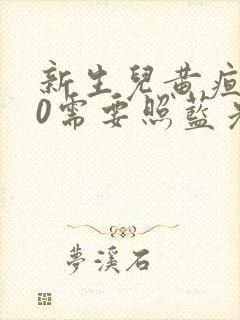 新生兒黃疸
0需要照藍光
夢溪石